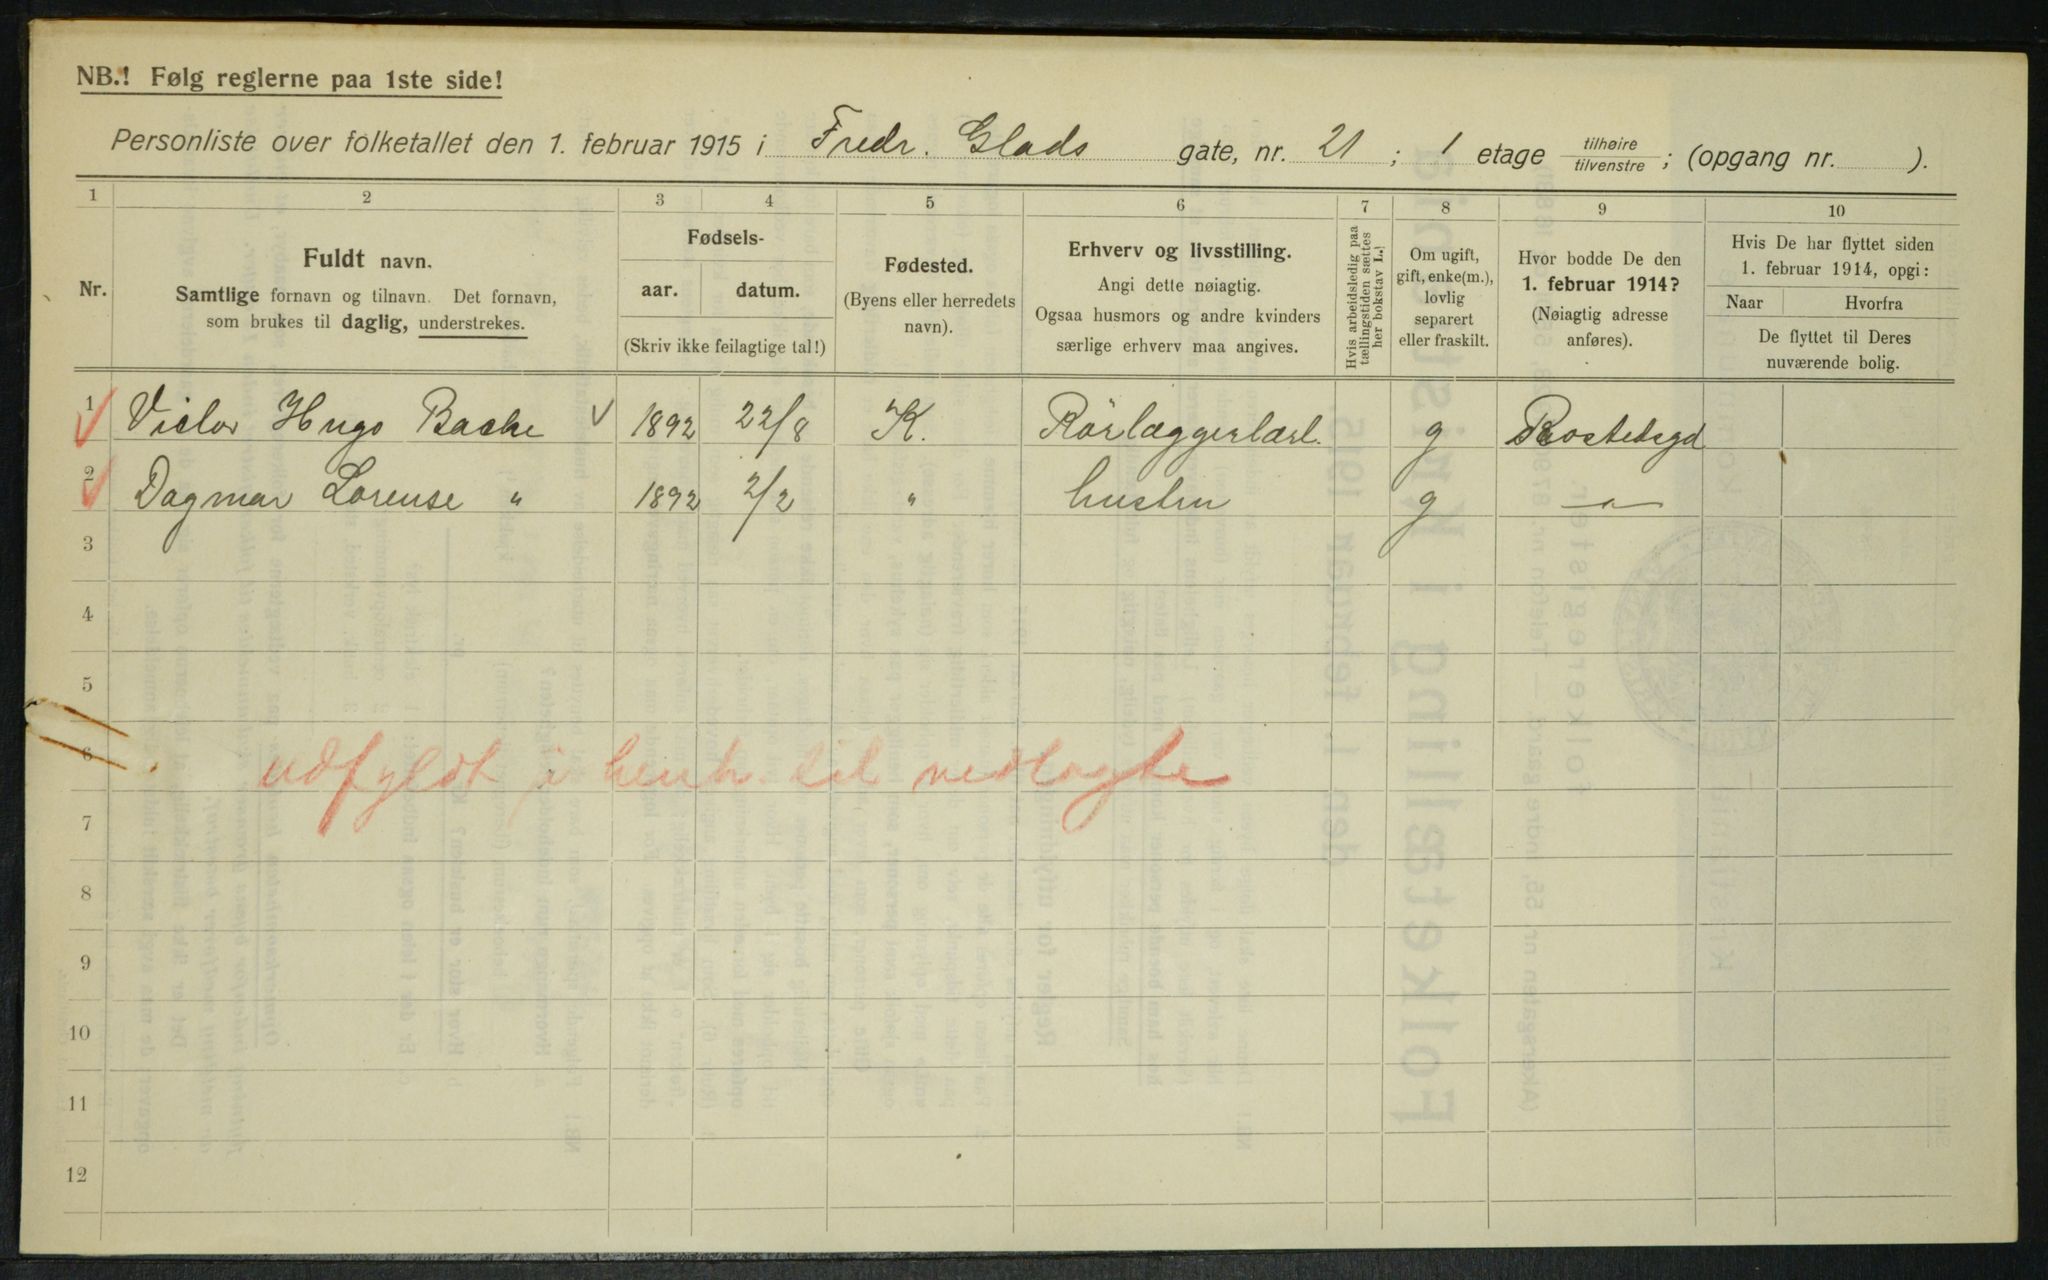 NB.! Følg reglerne paa 1ste side!
Personliste over folketallet den 1. februar 1915 i Fredr. Glads gate, nr. 21 ; 1 etage tilhøire tilvenstre ; (opgang nr. ).
1 2 3 4 5 6 7 8 9 10
Nr.
Fuldt navn.
Samtlige fornavn og tilnavn. Det fornavn,
som brukes til daglig, understrekes.
Fødsels-
aar. datum.
(Skriv ikke feilagtige tal!)
Fødested.
(Byens eller herredets
navn).
Erhverv og livsstilling.
Angi dette nøiagtig.
Ogsaa husmors og andre kvinders
særlige erhverv maa angives.
Hvis arbeidsledig paa
tællingstiden sættes
her bokstav L.!
Om ugift,
gift, enke(m.),
lovlig
separert
eller fraskilt.
Hvor bodde De den
1. februar 1914?
(Nøiagtig adresse
anføres).
Hvis De har flyttet siden
1. februar 1914, opgi:
Naar Hvorfra
De flyttet til Deres
nuværende bolig.
1 Victor Hugo Backe 1892 22/8 K. Rörlæggerlærl. g Rostedsgd
2 Dagmar Lorense " 1892 2/2 " hustru g —"—
3
4
5
6
udfyldt i henh. til vedlagte
7
8
9
10
11
12